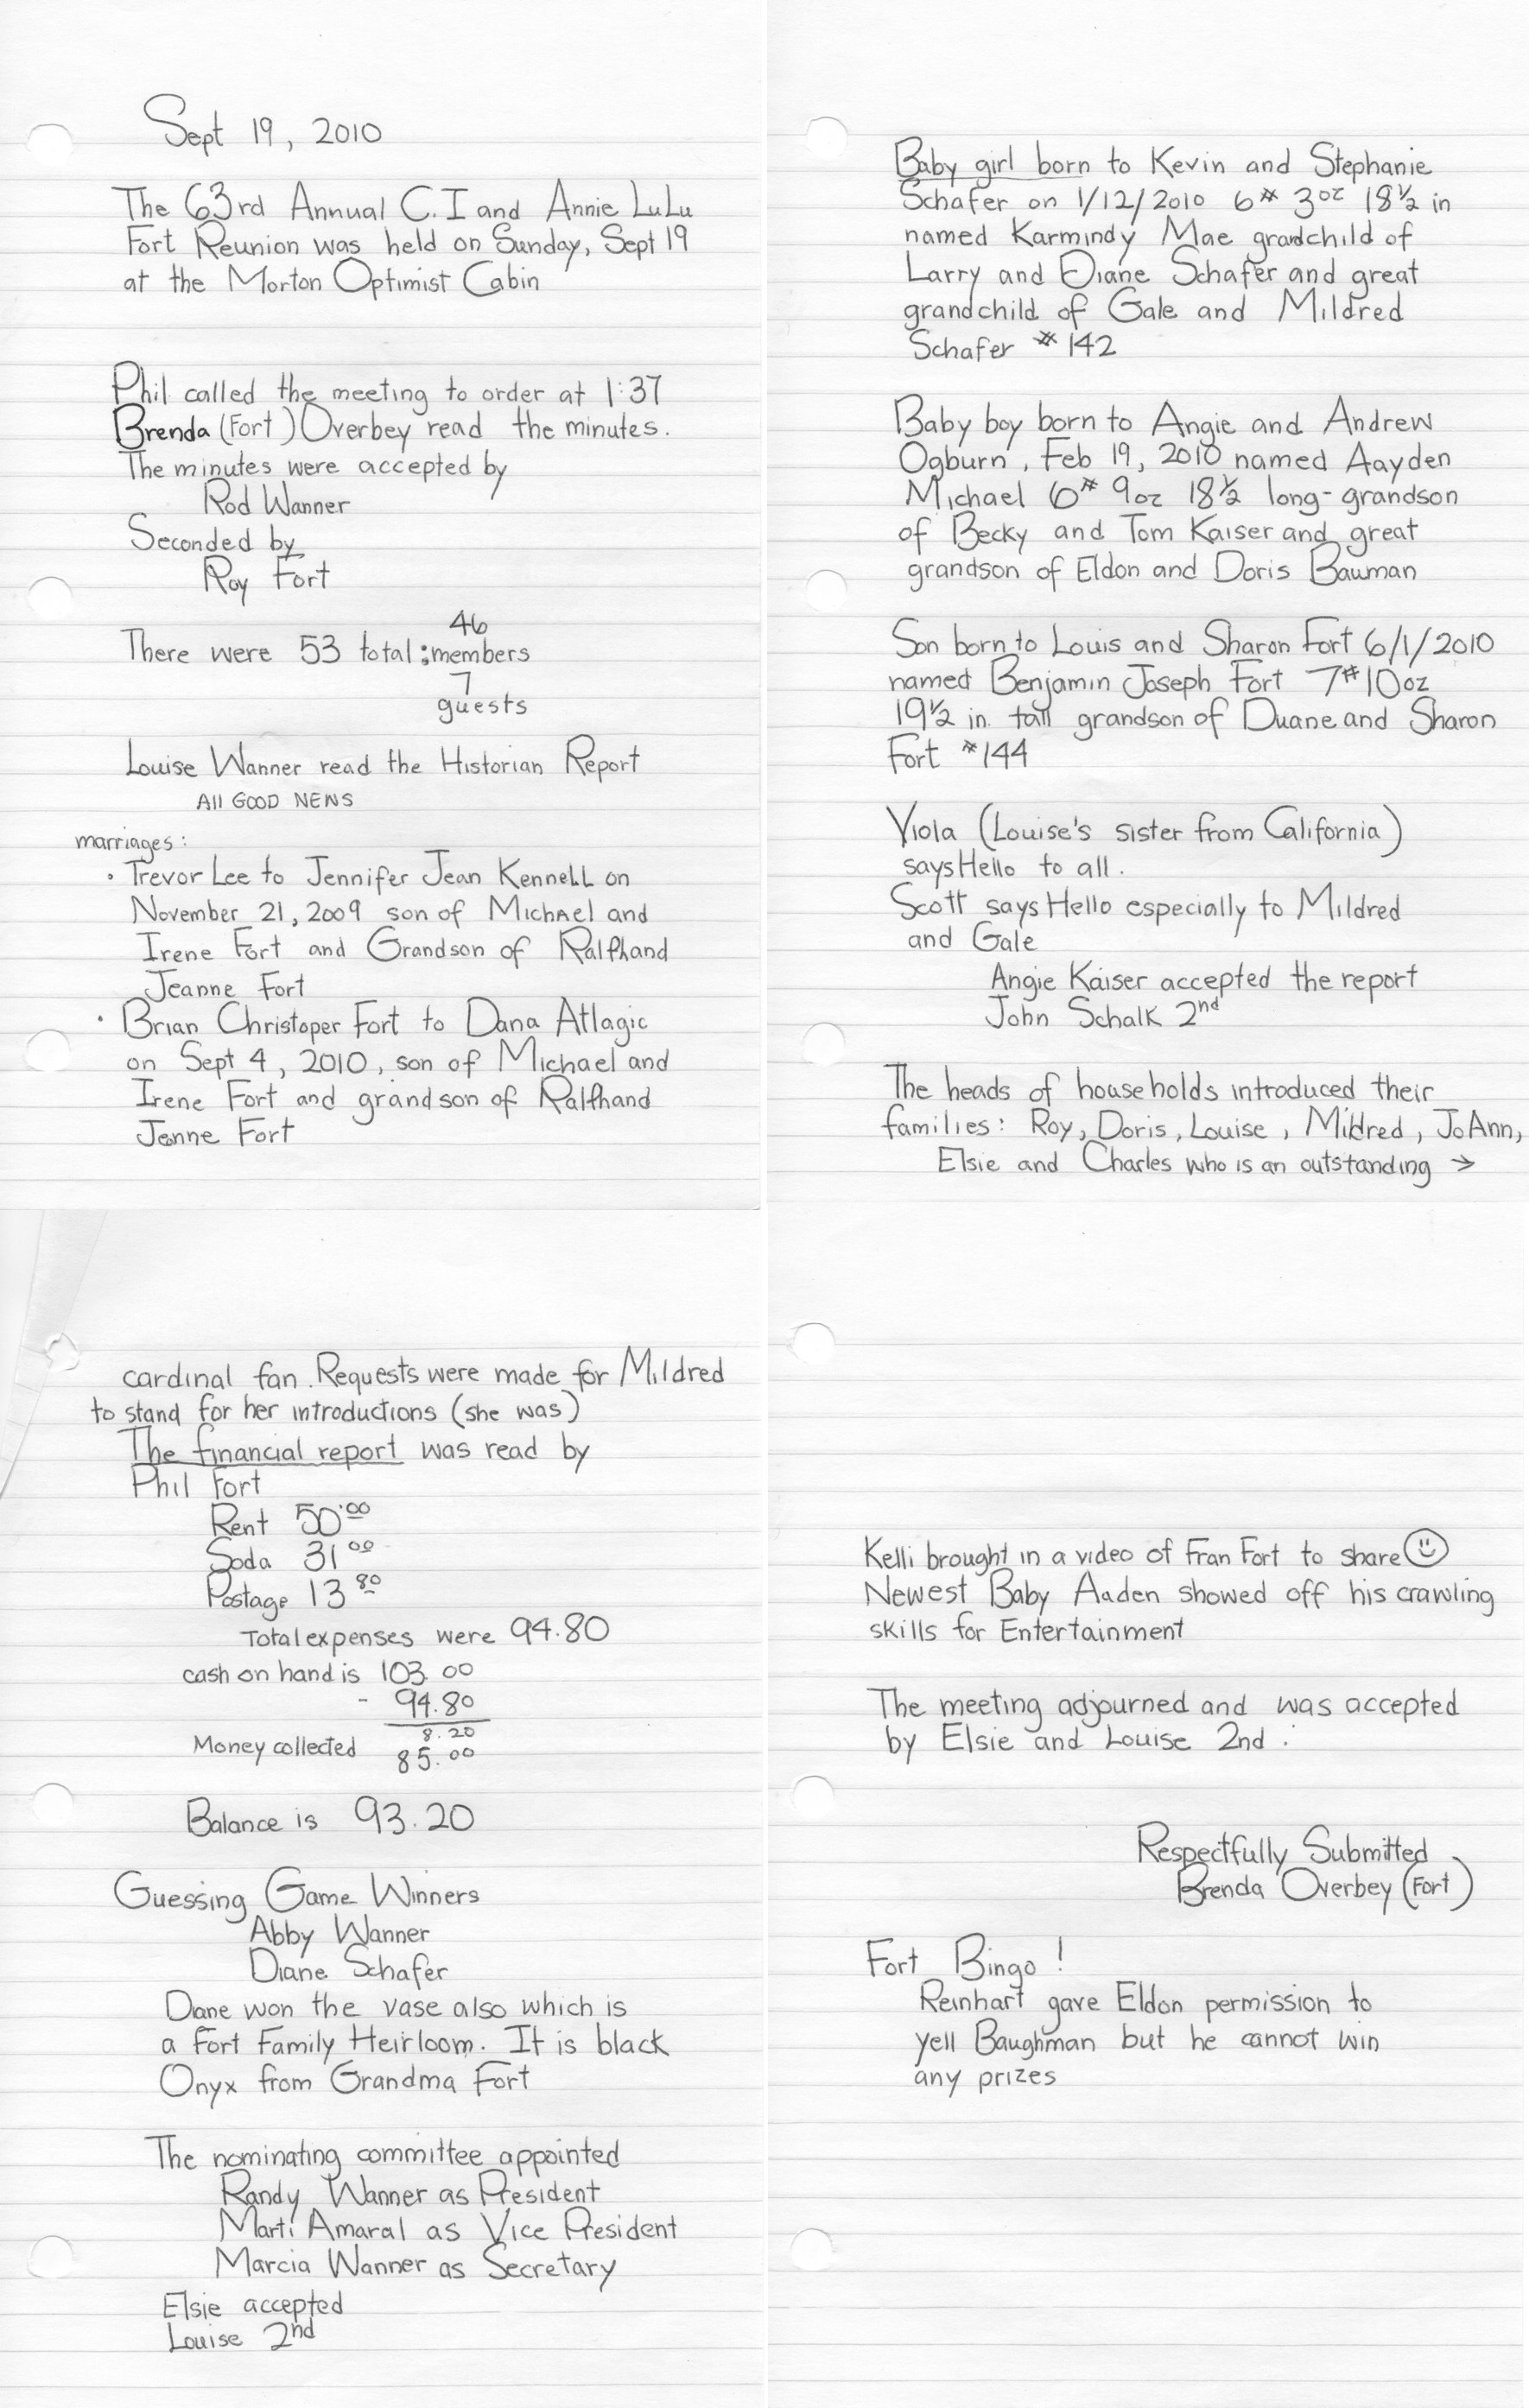 Sept 19, 2010
The 63rd Annual C.I and Annie LuLu
Fort Reunion was held on Sunday, Sept 19
at the Morton Optimist Cabin
Phil called the meeting to order at 1:37
Brenda (Fort) Overbey read the minutes.
The minutes were accepted by
Rod Wanner
Seconded by
Roy Fort
46
There were 53 total: members
7
guests
Louise Wanner read the Historian Report
All GOOD NEWS
marriages:
• Trevor Lee to Jennifer Jean Kennell on
November 21, 2009 son of Michael and
Irene Fort and Grandson of Ralph and
Jeanne Fort
• Brian Christoper Fort to Dana Atlagic
on Sept 4, 2010, son of Michael and
Irene Fort and grandson of Ralph and
Jenne Fort
Baby girl born to Kevin and Stephanie
Schafer on 1/12/2010 6# 3oz 18½ in
named Karmindy Mae grandchild of
Larry and Diane Schafer and great
grandchild of Gale and Mildred
Schafer #142
Baby boy born to Angie and Andrew
Ogburn, Feb 19, 2010 named Aayden
Michael 6# 9oz 18½ long - grandson
of Becky and Tom Kaiser and great
grandson of Eldon and Doris Bauman
Son born to Louis and Sharon Fort 6/1/2010
named Benjamin Joseph Fort 7# 10oz
19½ in. tall grandson of Duane and Sharon
Fort #144
Viola (Louise's sister from California)
says Hello to all.
Scott says Hello especially to Mildred
and Gale
Angie Kaiser accepted the report
John Schalk 2nd
The heads of households introduced their
families: Roy, Doris, Louise, Mildred, JoAnn,
Elsie and Charles who is an outstanding →
cardinal fan. Requests were made for Mildred
to stand for her introductions (she was)
The financial report was read by
Phil Fort
Rent 50.00
Soda 31 00
Postage 13 80
Total expenses were 94.80
cash on hand is 103.00
- 94.80
8.20
Money collected 85.00
Balance is 93.20
Guessing Game Winners
Abby Wanner
Diane Schafer
Diane won the vase also which is
a Fort Family Heirloom. It is black
Onyx from Grandma Fort
The nominating committee appointed
Randy Wanner as President
Marti Amaral as Vice President
Marcia Wanner as Secretary
Elsie accepted
Louise 2nd
Kelli brought in a video of Fran Fort to share
Newest Baby Aaden showed off his crawling
skills for Entertainment
The meeting adjourned and was accepted
by Elsie and Louise 2nd.
Respectfully Submitted
Brenda Overbey (Fort)
Fort Bingo!
Reinhart gave Eldon permission to
yell Baughman but he cannot win
any prizes